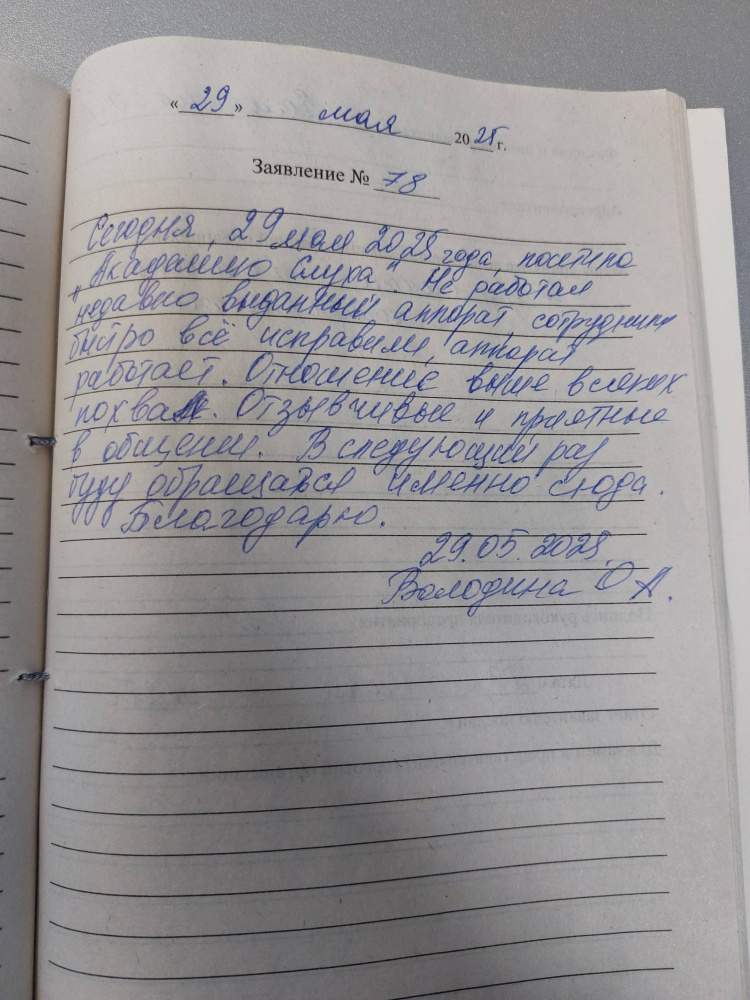 « 29 » мая 2025 г.
Заявление № 78
Сегодня, 29 мая 2025 года, посетила
"Академию Слуха" Не работал
недавно выданный аппарат, сотрудники
быстро всё исправили, аппарат
работает. Отношение выше всяких
похвал. Отзывчивые и приятные
в общении. В следующий раз
буду обращаться именно сюда.
Благодарю.
29.05.2025
Володина О А.